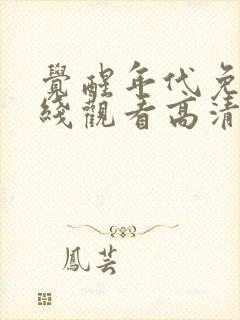 覺醒年代免
綫觀看高清
鳳芸